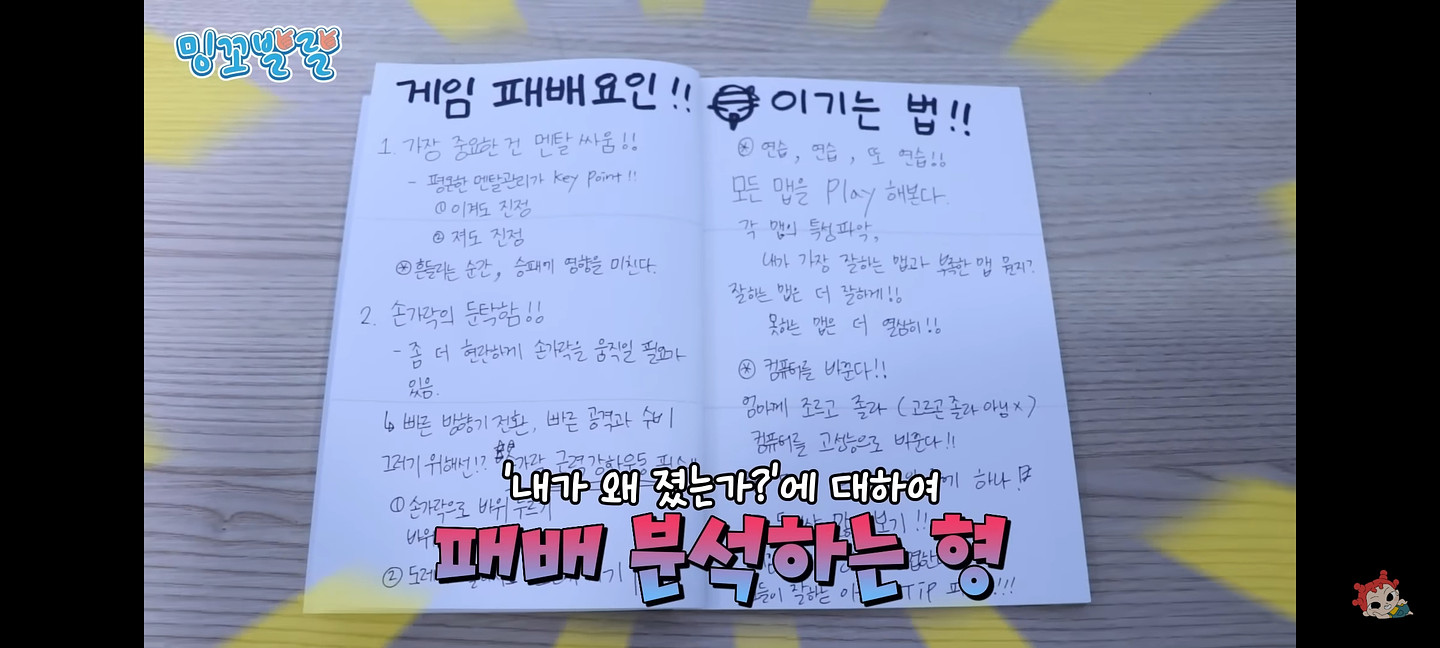 밍꼬발랄
게임 패배요인!!
1. 가장 중요한 건 멘탈 싸움!!
- 평온한 멘탈관리가 key point!!
① 이겨도 진정
② 져도 진정
※ 흔들리는 순간, 승패에 영향을 미친다.
2. 손가락의 둔탁함!!
- 좀 더 현란하게 손가락을 움직일 필요가
있음.
↳ 빠른 방향기 전환, 빠른 공격과 수비!
그러기 위해선!? 손가락 근력 강화운동
① 손가락으로 바위 두르기
바위
②
이기는 법!!
※ 연습, 연습, 또 연습!!
모든 맵을 Play 해본다.
각 맵의 특성파악,
내가 가장 잘하는 맵과 부족한 맵 뭔지?
잘하는 맵은 더 잘하게!!
못하는 맵은 더 열심히!!
※ 컴퓨터를 바꾼다!!
엄마께 조르고 졸라 (고르곤 졸라 아님 x)
컴퓨터를 고성능으로 바꾼다!!
하나!
보기!!
잘하는 TIP !!!
'내가 왜 졌는가?'에 대하여
패배 분석하는 형